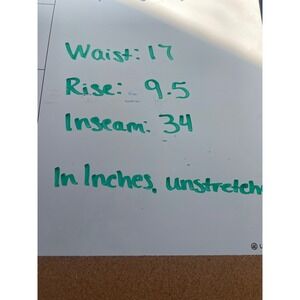 Waist: 17
Rise: 9.5
Inseam: 34
In Inches, unstretch